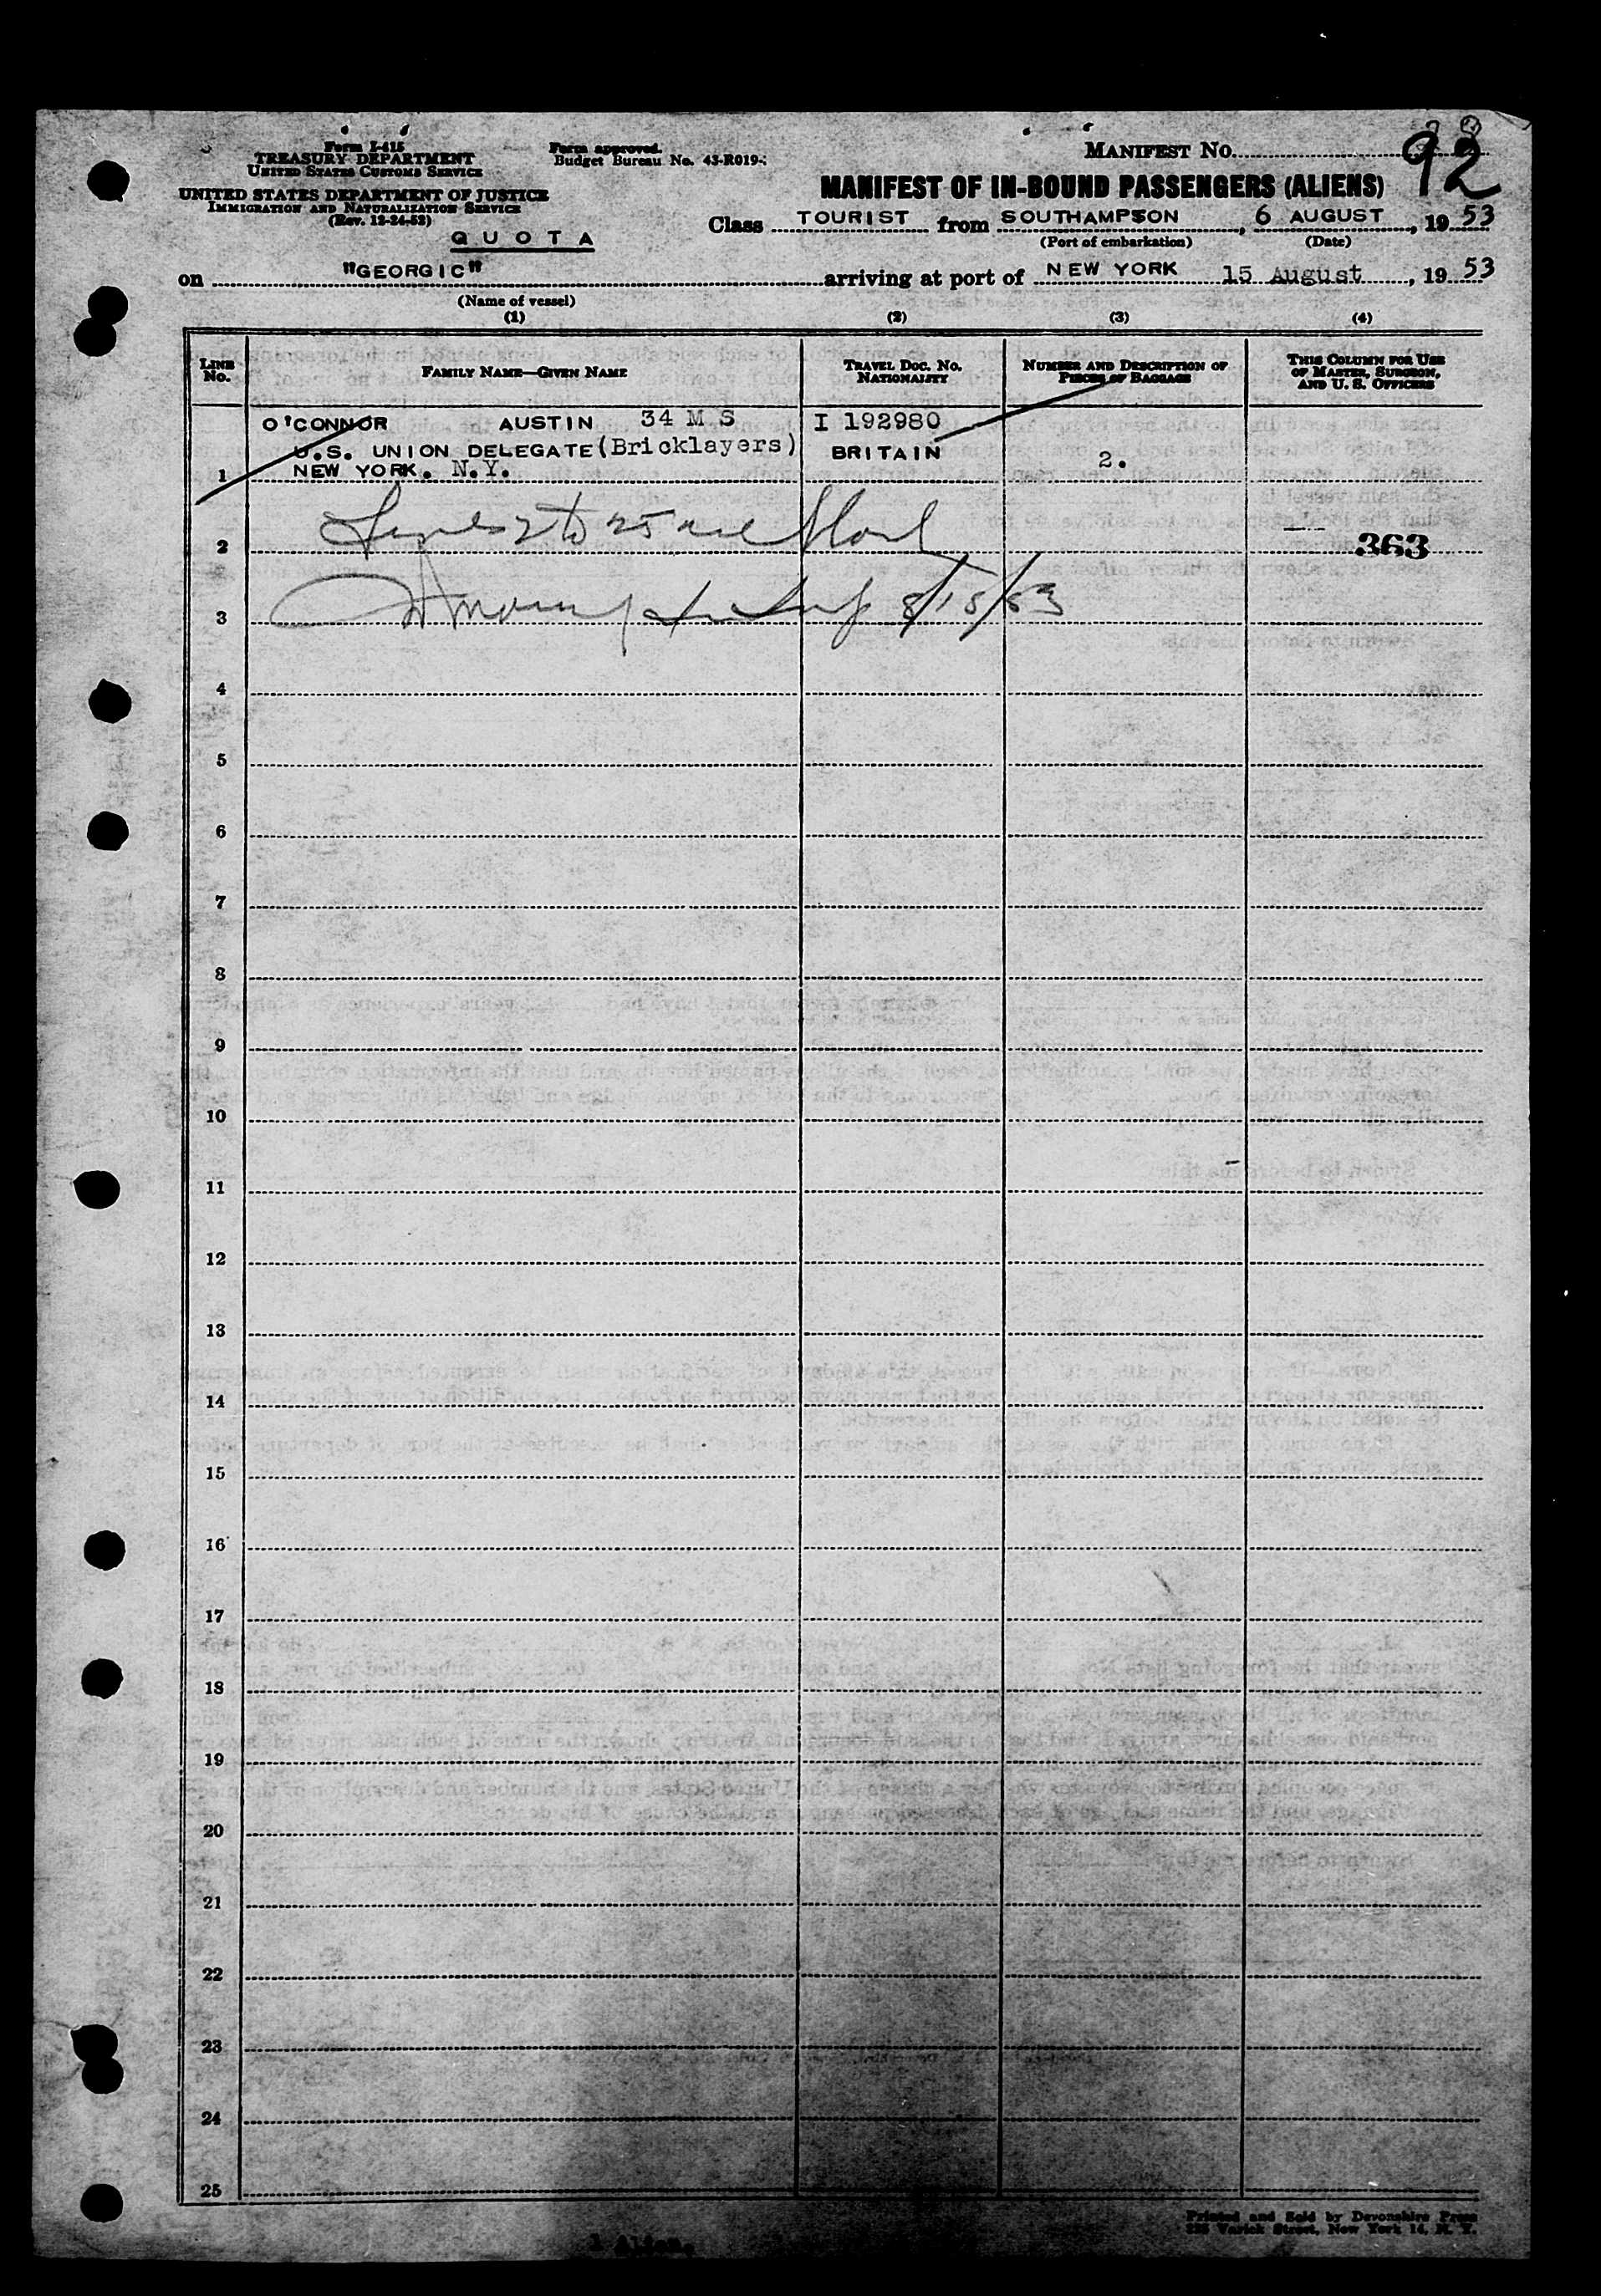 Form I-415
TREASURY DEPARTMENT
UNITED STATES CUSTOMS SERVICE
Form approved.
Budget Bureau No. 43-R019-
MANIFEST No. 92
UNITED STATES DEPARTMENT OF JUSTICE
IMMIGRATION AND NATURALIZATION SERVICE
(Rev. 12-24-52)
MANIFEST OF IN-BOUND PASSENGERS (ALIENS)
QUOTA
Class TOURIST from SOUTHAMPSON, 6 AUGUST, 1953
(Port of embarkation) (Date)
on "GEORGIC" arriving at port of NEW YORK 15 August, 1953
(Name of vessel)
(1) (2) (3) (4)
LINE No.
FAMILY NAME—GIVEN NAME
TRAVEL DOC. NO.
NATIONALITY
NUMBER AND DESCRIPTION OF
PIECES OF BAGGAGE
THIS COLUMN FOR USE
OF MASTER, SURGEON,
AND U. S. OFFICERS
O'CONNOR AUSTIN 34 M S I 192980
U.S. UNION DELEGATE (Bricklayers) BRITAIN
1 NEW YORK. N.Y. 2.
2 Lines 2 to 25 are blank 363
3 8/15/53
4
5
6
7
8
9
10
11
12
13
14
15
16
17
18
19
20
21
22
23
24
25
Printed and Sold by Devonshire Press
New York 14, N. Y.